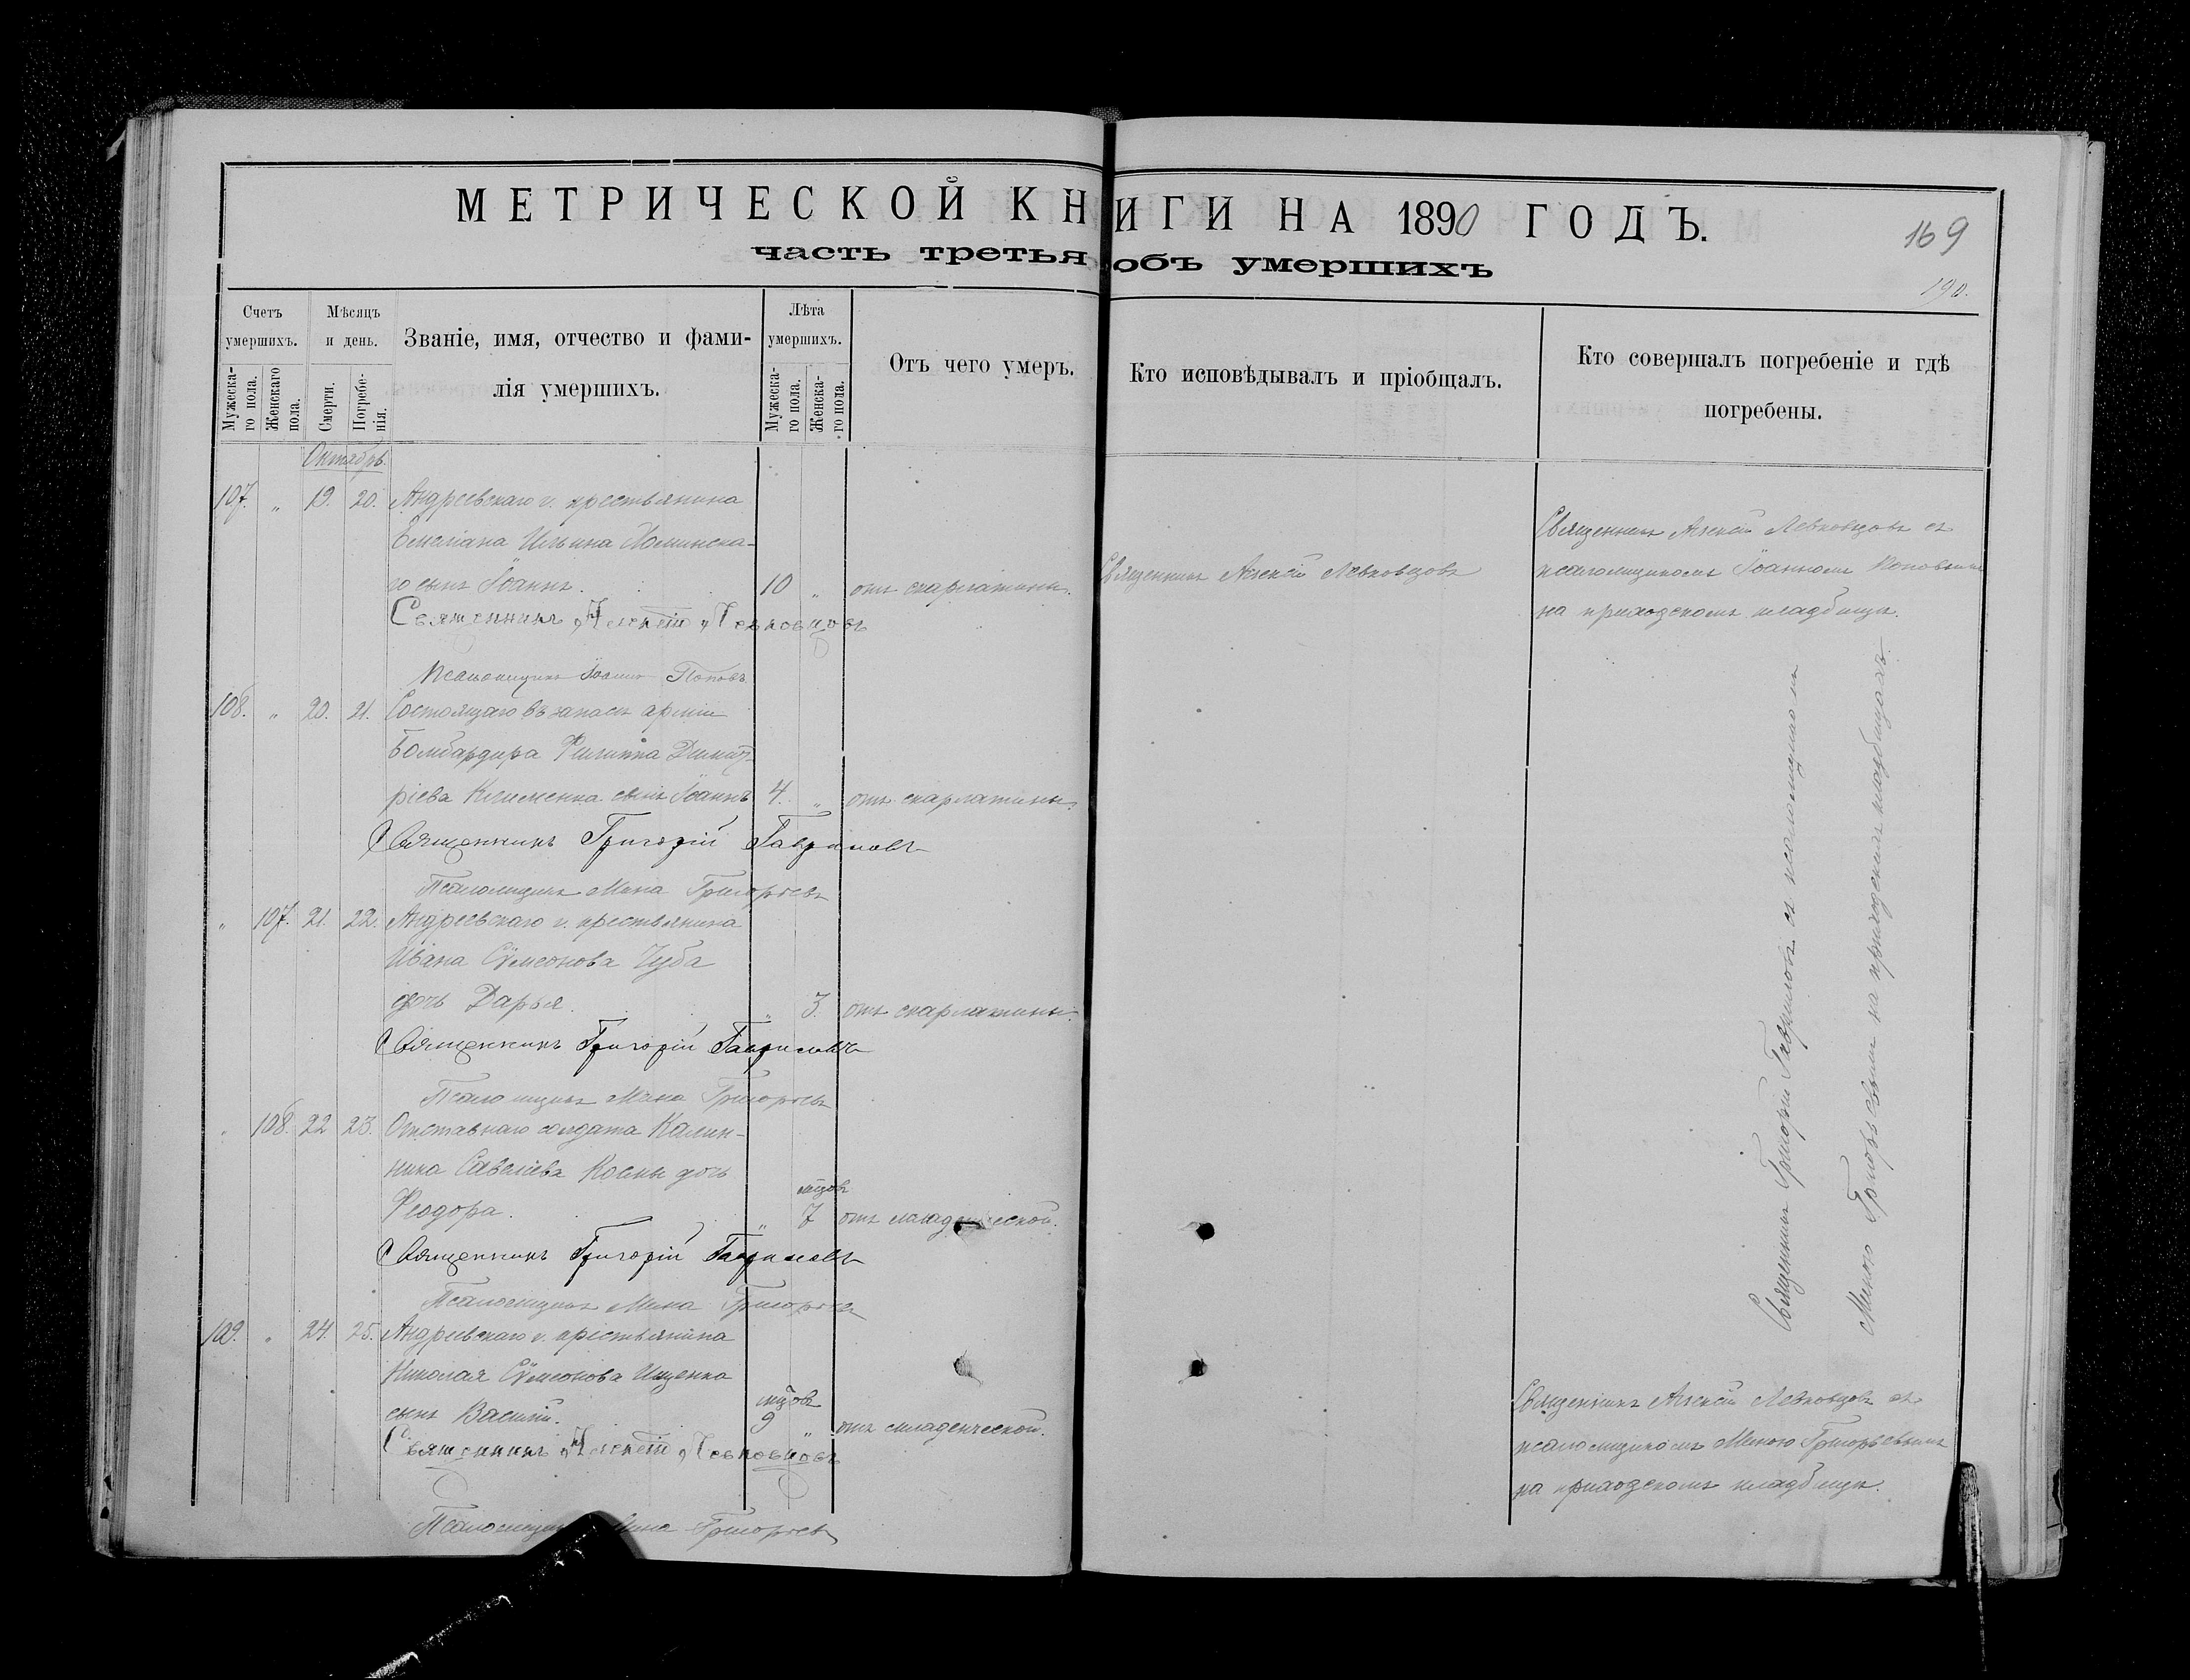 МЕТРИЧЕСКОЙ КНИГИ НА 1890 ГОДЪ.
часть третья объ умершихъ
169
190.
Счетъ умершихъ.
Мужеска-го пола.
Женскаго пола.
Мѣсяцъ и день.
Смерти.
Погребе-нія.
Званіе, имя, отчество и фами-
лія умершихъ.
Лѣта умершихъ.
Мужеска-го пола.
Женска-го пола.
Отъ чего умеръ.
Кто исповѣдывалъ и пріобщалъ.
Кто совершалъ погребеніе и гдѣ
погребены.
Октябрь.
107. „ 19. 20. Андреевскаго с. крестьянина
Емеліана Ильина
го сынъ Іоаннъ. 10 „ отъ скарлатины. Священникъ Алексій Левковцовъ
Священникъ Алексій Левковцовъ съ
псаломщикомъ Іоанномъ Поповымъ
на приходскомъ кладбищѣ.
Священникъ Алексій Левковцовъ
Псаломщикъ Іоаннъ Поповъ
108. „ 20. 21. Состоящаго въ запасѣ арміи
Бомбардира Филиппа Димит-
ріева Клименка сынъ Іоаннъ 4. „ отъ скарлатины.
Священникъ Григорій Гавриловъ
Псаломщикъ Мина Григорьевъ
„ 107. 21. 22. Андреевскаго с. крестьянина
Ивана Сѵмеонова Чуба
дочь Дарья. „ 3. отъ скарлатины.
Священникъ Григорій Гавриловъ
Псаломщикъ Мина Григорьевъ
„ 108. 22 23. Отставнаго солдата Калин-
ника Савеліева дочь
Ѳеодора. „ мцовъ 7 отъ младенческой.
Священникъ Григорій Гавриловъ
Псаломщикъ Мина Григорьевъ
Священникъ Григорій Гавриловъ съ псаломщикомъ
Миною Григорьевымъ на приходскомъ кладбищѣ
109. „ 24. 25. Андреевскаго с. крестьянина
Николая Сѵмеонова Ищенка
сынъ Василій. мцовъ 9 „ отъ младенческой.
Священникъ Алексій Левковцовъ съ
псаломщикомъ Миною Григорьевымъ
на приходскомъ кладбищѣ.
Священникъ Алексій Левковцовъ
Псаломщикъ Мина Григорьевъ